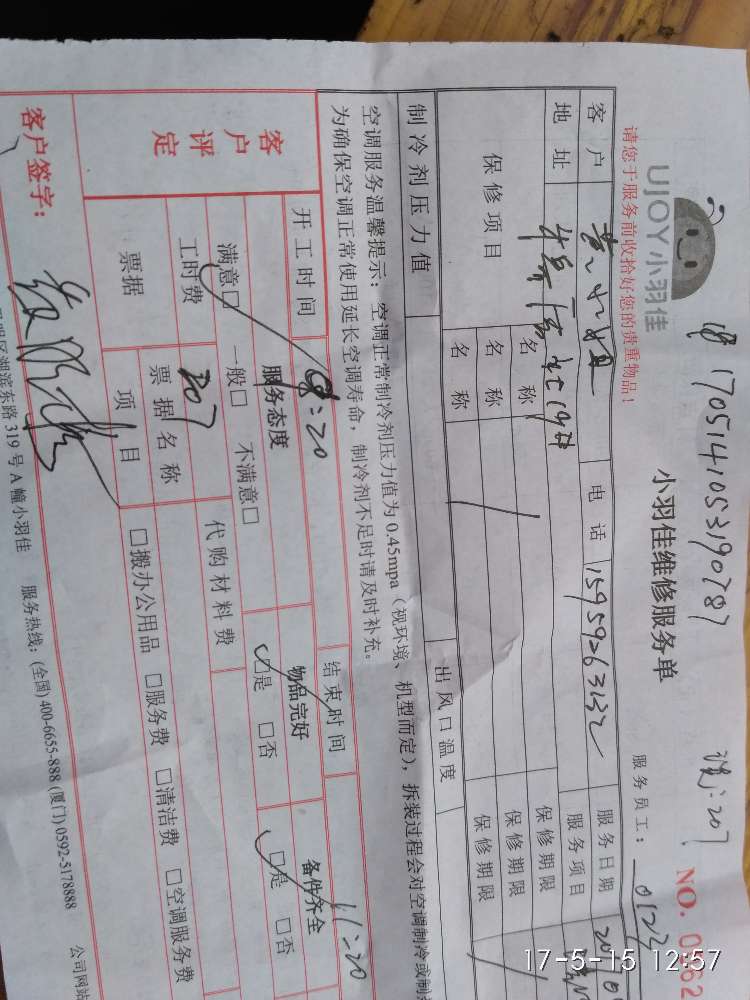 170514105390787
UJOY小羽佳
小羽佳维修服务单
:207
NO. 0
62
请您于服务前收拾好您的贵重物品！
服务员工：
0122
客户
电话
15959263132
服务日期
20
地址
服务项目
保修项目
名称
保修期限
名称
保修期限
名称
保修期限
制冷剂压力值
出风口温度
空调服务温馨提示：空调正常制冷剂压力值为0.45mpa（视环境、机型而定），拆装过程会对空调制冷或制
为确保空调正常使用延长空调寿命，制冷剂不足时请及时补充。
客户评定
开工时间
:20
结束时间
11:20
服务态度
物品完好
备件齐全
满意□ 一般□ 不满意□
□是 □否
□是 □否
工时费
207
代购材料费
票据
票据名称
项目
□搬办公用品 □服务费 □清洁费 □空调服务费
客户签字：
明区湖滨东路319号A幢小羽佳 服务热线：(全国)400-6655-888 (厦门)0592-5178888 公司网站
17-5-15 12:57